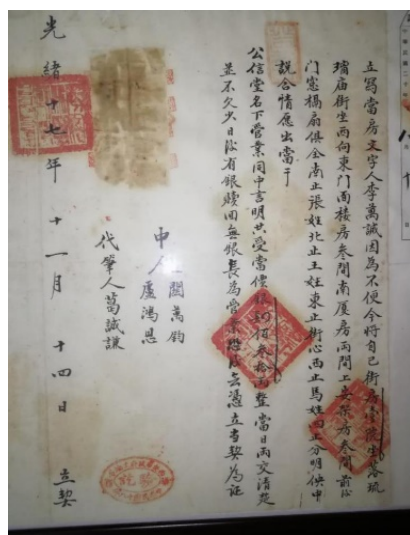 立寫當房文字人李萬誠因為不便今將自己街房壹院坐落琉
璃庙街坐西向東門面樓房叁間南厦房兩間上安架房叁間前後
門窓槅扇俱全南止張姓北止王姓東止街心西止馬姓四止分明使中
說合情愿出當于
公信堂名下營業同中言明共受當價銀 佰叁拾兩整當日兩交清楚
並不欠少日後有銀贖回無銀長為營業恐後無憑立當契為証
中人 閻萬鈞
盧鴻恩
代筆人葛誠謙
光緒十七年十一月十四日立契